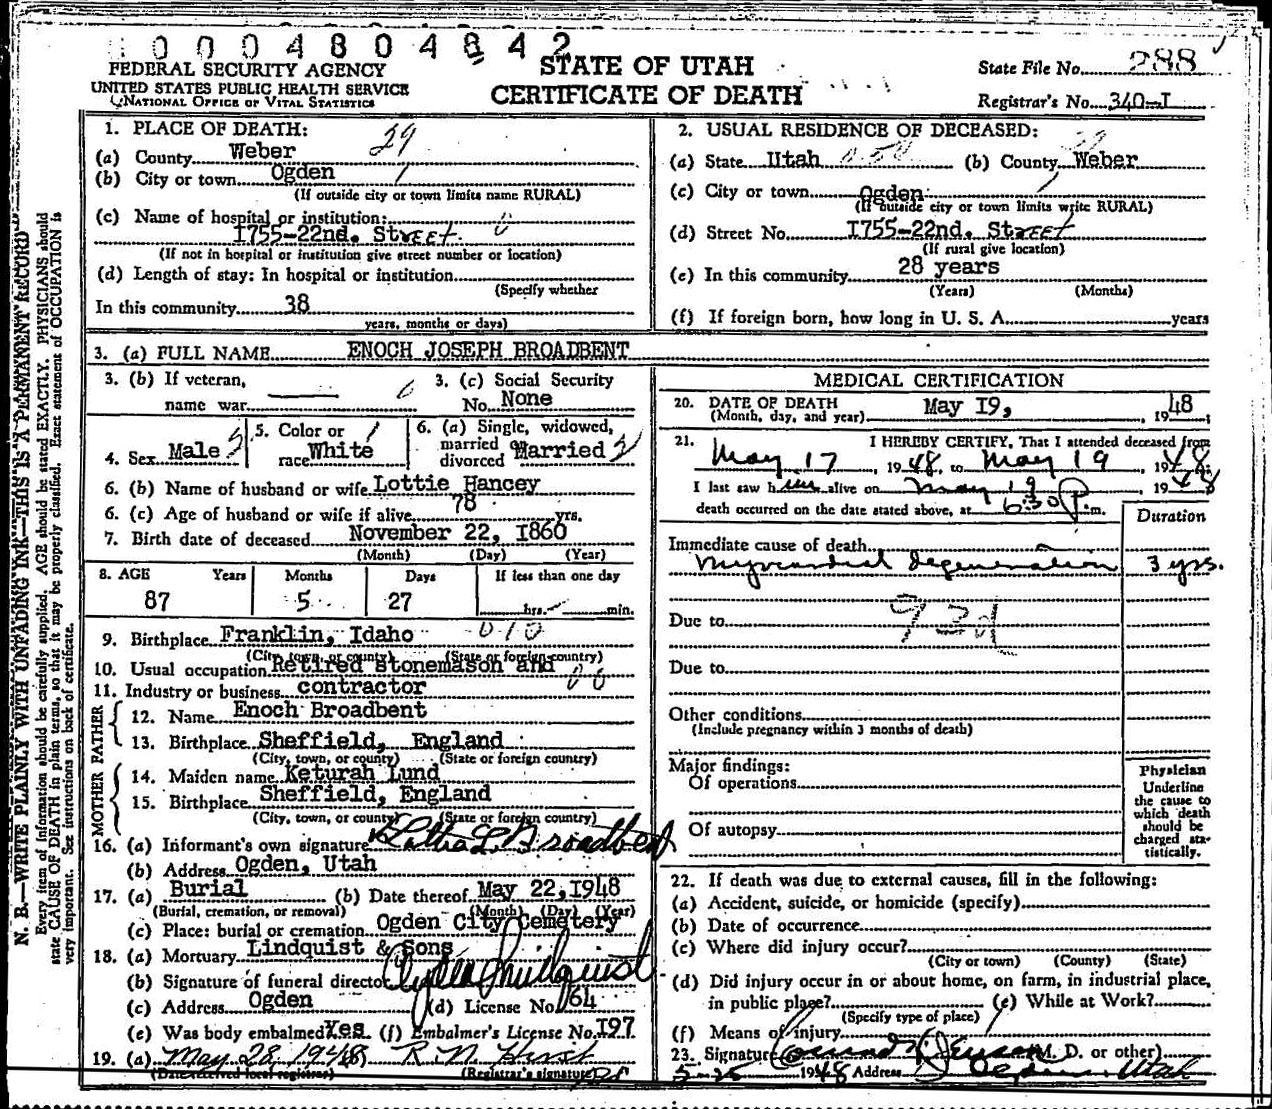 0004804842
FEDERAL SECURITY AGENCY
UNITED STATES PUBLIC HEALTH SERVICE
NATIONAL OFFICE OF VITAL STATISTICS
STATE OF UTAH
CERTIFICATE OF DEATH
State File No. 288
Registrar's No. 340-I
N. B.—WRITE PLAINLY WITH UNFADING INK—THIS IS A PERMANENT RECORD
Every item of information should be carefully supplied. AGE should be stated EXACTLY. PHYSICIANS should
state CAUSE OF DEATH in plain terms, so that it may be properly classified. Exact statement of OCCUPATION is
very important. See instructions on back of certificate.
1. PLACE OF DEATH: 29
(a) County Weber
(b) City or town Ogden
(If outside city or town limits name RURAL)
(c) Name of hospital or institution:
I755-22nd. Street
(If not in hospital or institution give street number or location)
(d) Length of stay: In hospital or institution
(Specify whether
In this community 38
years, months or days)
2. USUAL RESIDENCE OF DECEASED:
(a) State Utah (b) County Weber
(c) City or town Ogden
(If outside city or town limits write RURAL)
(d) Street No. I755-22nd. Street
(If rural give location)
(e) In this community 28 years
(Years) (Months)
(f) If foreign born, how long in U. S. A. years
3. (a) FULL NAME ENOCH JOSEPH BROADBENT
3. (b) If veteran,
name war
3. (c) Social Security
No. None
4. Sex Male
5. Color or
race White
6. (a) Single, widowed,
married or
divorced Married
6. (b) Name of husband or wife Lottie Hancey
6. (c) Age of husband or wife if alive 78 yrs.
7. Birth date of deceased November 22, I860
(Month) (Day) (Year)
8. AGE Years Months Days If less than one day
87 5 27 hrs. min.
9. Birthplace Franklin, Idaho 010
(City, town, or county) (State or foreign country)
10. Usual occupation Retired stonemason and
11. Industry or business contractor
FATHER
12. Name Enoch Broadbent
13. Birthplace Sheffield, England
(City, town, or county) (State or foreign country)
MOTHER
14. Maiden name Keturah Lund
15. Birthplace Sheffield, England
(City, town, or county) (State or foreign country)
16. (a) Informant's own signature Broadbent
(b) Address Ogden, Utah
17. (a) Burial (b) Date thereof May 22, I948
(Burial, cremation, or removal) (Month) (Day) (Year)
(c) Place: burial or cremation Ogden City Cemetery
18. (a) Mortuary Lindquist & Sons
(b) Signature of funeral director Lindquist
(c) Address Ogden (d) License No. 164
(e) Was body embalmed Yes (f) Embalmer's License No. I97
19. (a) May 28 1948 R N Hirst
(Date received local registrar) (Registrar's signature)
MEDICAL CERTIFICATION
20. DATE OF DEATH
(Month, day, and year) May I9, 1948
21. I HEREBY CERTIFY, That I attended deceased from
May 17, 1948, to May 19, 1948.
I last saw him alive on May 19, 1948
death occurred on the date stated above, at 6:30 P. m.
Duration
Immediate cause of death
Myocardial degeneration 3 yrs.
Due to 93d
Due to
Other conditions
(Include pregnancy within 3 months of death)
Major findings:
Of operations
Of autopsy
Physician
Underline
the cause to
which death
should be
charged sta-
tistically.
22. If death was due to external causes, fill in the following:
(a) Accident, suicide, or homicide (specify)
(b) Date of occurrence
(c) Where did injury occur?
(City or town) (County) (State)
(d) Did injury occur in or about home, on farm, in industrial place,
in public place? (e) While at Work?
(Specify type of place)
(f) Means of injury
23. Signature Jenson (M. D. or other)
5-25 1948 Address Ogden, Utah